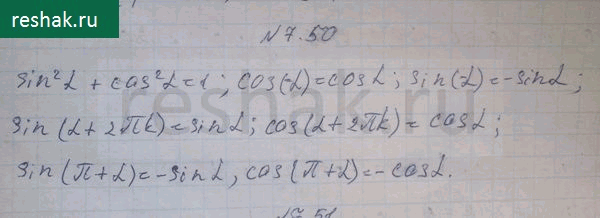 reshak.ru
№7.50
sin²α + cos²α = 1; cos(-α) = cosα; sin(-α) = -sinα;
sin(α + 2πk) = sinα; cos(α + 2πk) = cosα;
sin(π+α) = -sinα, cos(π+α) = -cosα.
№7.51